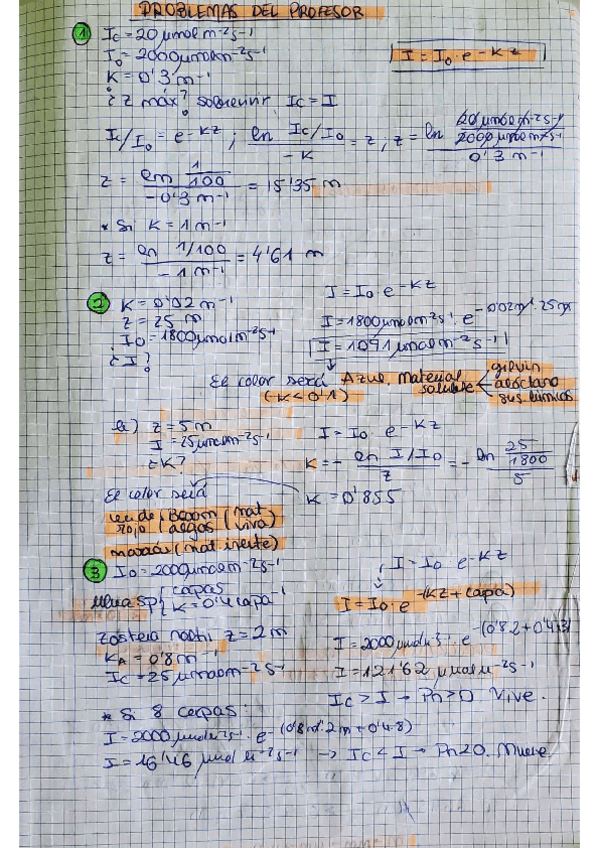 PROBLEMAS DEL PROFESOR
1 Ic = 20 μmol m⁻²s⁻¹
I₀ = 2000 μmol m⁻²s⁻¹
I = I₀ · e^-Kz
K = 0'3 m⁻¹
¿z máx? sobrevivir Ic = I
Ic/I₀ = e^-Kz ; ln Ic/I₀ / -K = z ; z = ln 20 μmol m⁻²s⁻¹ / 2000 μmol m⁻²s⁻¹ / 0'3 m⁻¹
z = ln 1/100 / -0'3 m⁻¹ = 15'35 m
* Si K = 1 m⁻¹
z = ln 1/100 / -1 m⁻¹ = 4'61 m
2 K = 0'02 m⁻¹
z = 25 m
I₀ = 1800 μmol m⁻²s⁻¹
¿I?
I = I₀ · e^-Kz
I = 1800 μmol m⁻²s⁻¹ · e^-0'02 m⁻¹ · 25 m
I = 1091 μmol m⁻²s⁻¹
El color será Azul. Material soluble
gilvin
aloctano
sus. húmicas
(K < 0'1)
z = 5 m
I = 25 μmol m⁻²s⁻¹
¿K?
I = I₀ e^-Kz
K = - ln I/I₀ / z = - ln 25/1800 / 5
K = 0'855
El color será
verde (mat.
rojo algas viva)
marrón (mat. inerte)
3 I₀ = 2000 μmol m⁻²s⁻¹
I = I₀ e^-Kz
Ulva sp { capas
K = 0'4 capa⁻¹
I = I₀ · e^-(Kz + capa)
Zostera noltii z = 2 m
KA = 0'8 m⁻¹
Ic = 25 μmol m⁻²s⁻¹
I = 2000 · e^-(0'8·2 + 0'4·3)
I = 121'62 μmol m⁻²s⁻¹
Ic > I → Pn > 0 Vive.
* Si 8 capas:
I = 2000 μmol m⁻²s⁻¹ · e^-(0'8 m⁻¹·2m + 0'4·8)
I = 16'46 μmol m⁻²s⁻¹ → Ic < I → Pn < 0. Muere.